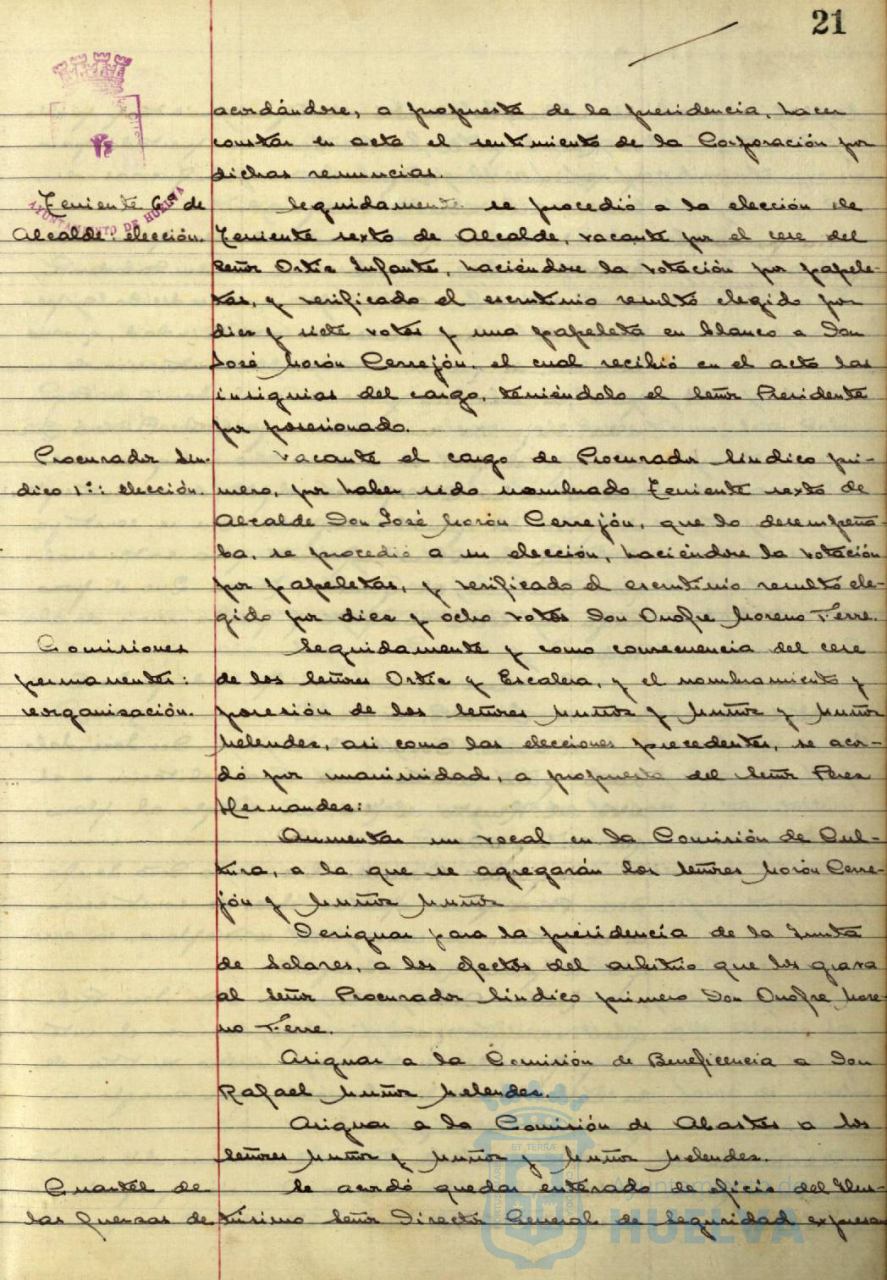 21
AYUNTAMIENTO DE HUELVA
acordándose, a propuesta de la presidencia, hacer
constar en acta el sentimiento de la Corporación por
dichas renuncias.
Teniente 6º de
Alcalde: elección.
Seguidamente se procedió a la elección de
Teniente sexto de Alcalde, vacante por el cese del
Señor Ortiz Infante, haciéndose la votación por papele-
tas, y verificado el escrutinio resultó elegido por
diez y siete votos y una papeleta en blanco a Don
José Morón Cerrejón, el cual recibió en el acto las
insignias del cargo, teniéndolo el Señor Presidente
por posesionado.
Procurador Sín-
dico 1º: elección.
Vacante el cargo de Procurador Síndico pri-
mero, por haber sido nombrado Teniente sexto de
Alcalde Don José Morón Cerrejón, que lo desempeña-
ba, se procedió a su elección, haciéndose la votación
por papeletas, y verificado el escrutinio resultó ele-
gido por diez y ocho votos Don Onofre Moreno Ferre.
Comisiones
permanentes:
reorganización.
Seguidamente y como consecuencia del cese
de los Señores Ortiz y Escalera, y el nombramiento y
posesión de los Señores Muñoz y Muñoz y Muñoz
Melendez, asi como las elecciones precedentes, se acor-
dó por unanimidad, a propuesta del Señor Perez
Hernandez:
Aumentar un vocal en la Comisión de Cul-
tura, a la que se agregarán los Señores Morón Cerre-
jón y Muñoz Muñoz
Designar para la presidencia de la Junta
de Solares, a los efectos del arbitrio que los grava
al Señor Procurador Síndico primero Don Onofre More-
no Ferre.
Asignar a la Comisión de Beneficencia a Don
Rafael Muñoz Melendez.
Asignar a la Comisión de Abastos a los
Señores Muñoz y Muñoz y Muñoz Melendez.
Cuartel de
las fuerzas de
Se acordó quedar enterado de oficio del Ilus-
trísimo Señor Director General de Seguridad expresan
HUELVA